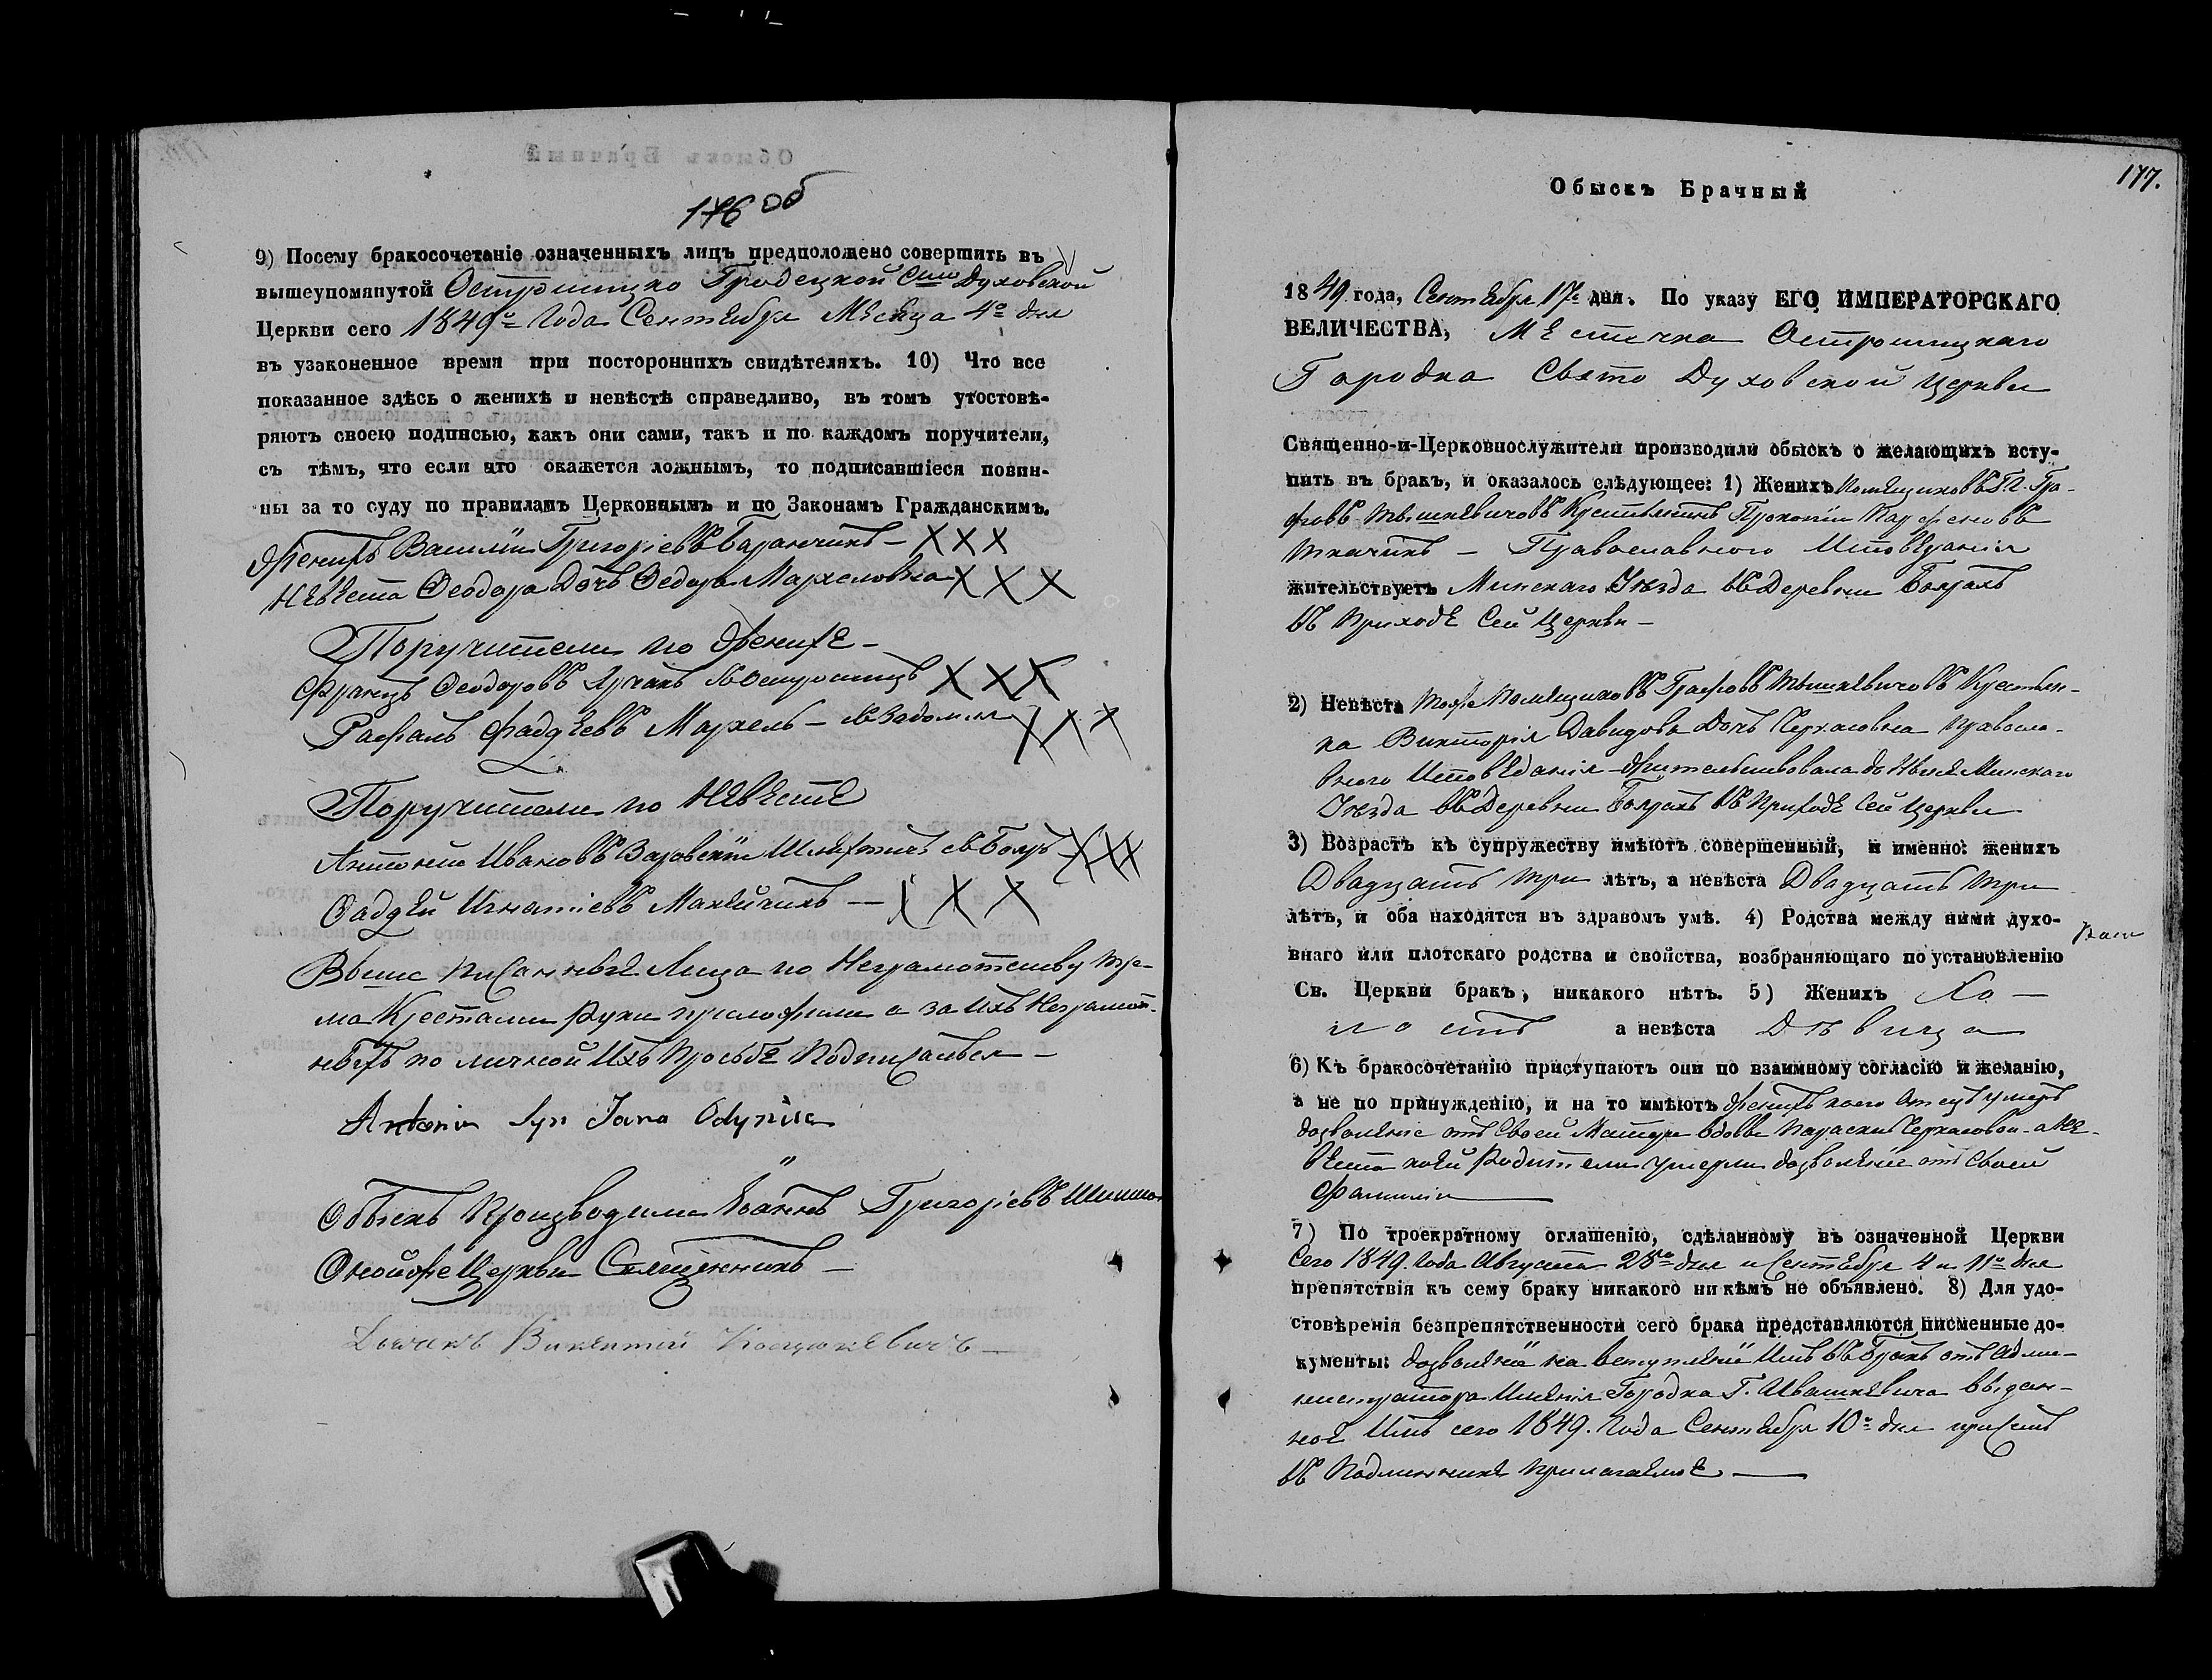 176 об
9) Посему бракосочетаніе означенныхъ лицъ предположено совершить въ
вышеупомянутой Острошицко Гродецкой Свто Духовской
Церкви сего 1849го Года Сентября Мѣсяца 4го дня
въ узаконенное время при постороннихъ свидѣтеляхъ. 10) Что все
показанное здѣсь о женихѣ и невѣстѣ справедливо, въ томъ утостовѣ-
ряютъ своею подписью, какъ они сами, такъ и по каждомъ поручители,
съ тѣмъ, что если что окажется ложнымъ, то подписавшіеся повин-
ны за то суду по правиламъ Церковнымъ и по Законамъ Гражданскимъ.
Женихъ Василій Григоріевъ Баранчикъ — X X X
Невѣста Ѳеодора Дочь Ѳедора Мархеловна X X X
Поручители по Женихѣ —
Францъ Ѳеодоровъ X X X
Рафалъ Фадѣевъ Мархель — X X X
Поручители по Невѣстѣ
Антоній Ивановъ Шляхтичь X X X
Ѳадѣй Игнатіевъ Макейчикъ — X X X
Выше Писанныѣ Лица по Неграмотству тре-
ма Крестами Руки приложили а за ихъ Неграмот-
ныхъ по личной Ихъ Просьбѣ Подписался —
Antoni Syn Jana Odyniec
Обыскъ Производили Іоаннъ Григоріевъ
Оной же Церкви Священникъ —
Дьячекъ Викентій
177.
Обыскъ Брачный
1849 года, Сентября 17го дня. По указу ЕГО ИМПЕРАТОРСКАГО
ВЕЛИЧЕСТВА, Мѣстечка Острошицкаго
Городка Свято Духовской Церкви
Священно-и-Церковнослужители производили обыскъ о желающихъ всту-
пить въ бракъ, и оказалось слѣдующее: 1) Женихъ Помѣщиковъ Гг. Гра-
фовъ Тышкевичовъ Крестьянинъ Прокопій Парфеновъ
Ткачикъ — Православного Исповѣданія
жительствуетъ Минскаго Уѣзда въ Деревни Боярахъ
въ Приходѣ Сей Церкви —
2) Невѣста Тояже Помѣщиковъ Графовъ Тышкевичовъ Крестьян-
ка Викторія Давидова Дочь Черкасовна Правосла-
вного Исповѣданія Жительствовала до Нынѣ Минскаго
Уѣзда въ Деревни Боярахъ въ Приходѣ Сей Церкви
3) Возрастъ къ супружеству имѣютъ совершенный, и именно: женихъ
Двадцать три лѣтъ, а невѣста Двадцать три
лѣтъ, и оба находятся въ здравомъ умѣ. 4) Родства между ними духо-
внаго или плотскаго родства и свойства, возбраняющаго по установленію
Св. Церкви бракъ, никакого нѣтъ. 5) Женихъ Хо —
лостъ а невѣста Дѣвица
6) Къ бракосочетанію приступаютъ они по взаимному согласію и желанію,
а не по принужденію, и на то имѣютъ Женихъ коего Отецъ умеръ
дозволеніе отъ Своей Матери вдовы Параски Черкасовой — а Не-
вѣста коей Родители умерли дозволеніе отъ Своей
Фамиліи
7) По троекратному оглашенію, сдѣланному въ означенной Церкви
Сего 1849. Года Августа 28го дня и Сентября 4 и 11го дня
препятствія къ сему браку никакого ни кѣмъ не объявлено. 8) Для удо-
стовѣренія безпрепятственности сего брака представляются писменные до-
кументы: дозволеніе на вступленіе Имъ въ Бракъ отъ Адми-
нистратора Имѣнія Городка Г. Ивашкевича выдан-
ное Имъ сего 1849. Года Сентября 10го дня присемъ
въ Подлинникѣ Прилагаемоѣ —